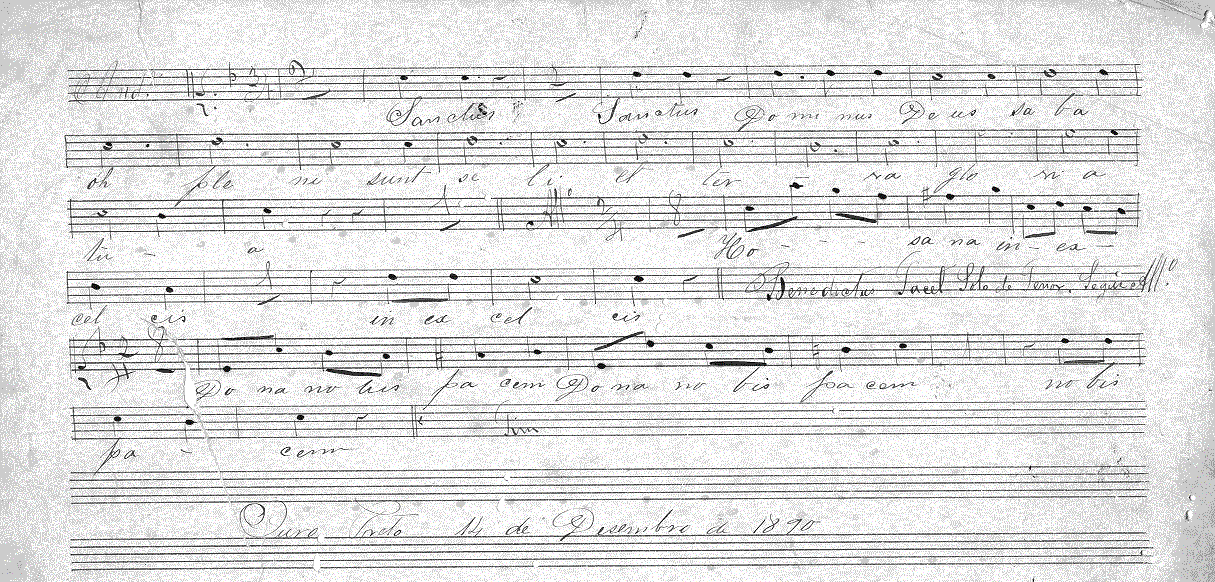 And.e
Sanctus Sanctus Do mi nus De us sa ba
oh ple ni sunt se li et ter - ra glo ri a
tu - a All.o Ho - - - sa na in - ex -
cel cis in ex cel cis Benedictus Tacet Solo de Tenor. Segue All.o
Do na no bis pa cem Do na no bis pa cem no bis
pa - cem Fim
Ouro Preto 14 de Desembro de 1890